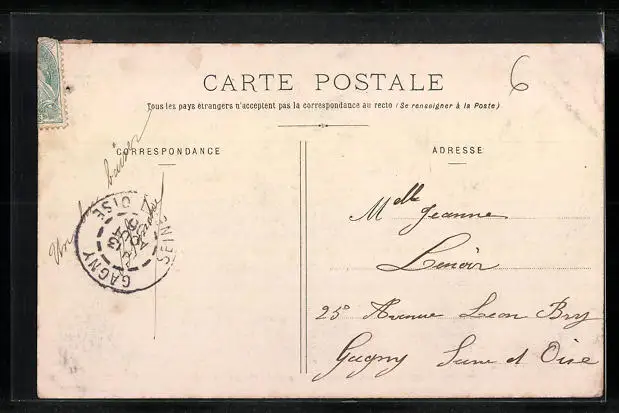 6
CARTE POSTALE
Tous les pays étrangers n'acceptent pas la correspondance au recto (Se renseigner à la Poste)
CORRESPONDANCE
ADRESSE
Un bon baiser
GAGNY
SEINE
OISE
Melle Jeanne
Lenoir
25 Avenue Leon Bry
Gagny Seine et Oise